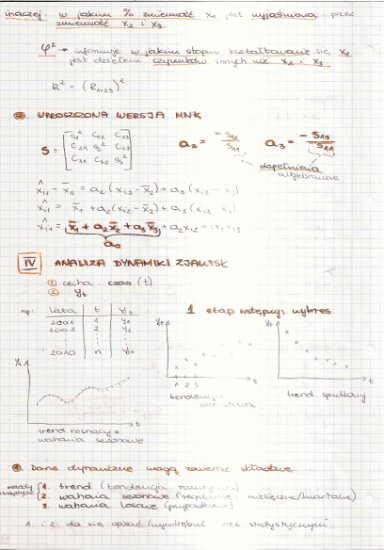 inaczej w jakim % zmienność x₁ jest wyjaśniona przez
zmienność x₂ i x₃
φ² → informuje w jakim stopniu kształtowanie się x₁
jest dziełem czynników innych niż x₂ i x₃
R² = (R₁.₂₃)²
UPROSZCZONA WERSJA MNK
S = [S₁² C₁₂ C₁₃
C₂₁ S₂² C₂₃
C₃₁ C₃₂ S₃²]
a₂ = -S₁₂/S₁₁ a₃ = -S₁₃/S₁₁
dopełnienia
algebraiczne
x̂ᵢ₁ - x̄₁ = a₂(xᵢ₂ - x̄₂) + a₃(xᵢ₃ - x̄₃)
x̂ᵢ₁ = x̄₁ + a₂(xᵢ₂ - x̄₂) + a₃(xᵢ₃ - x̄₃)
x̂ᵢ₁ = x̄₁ + a₂x̄₂ + a₃x̄₃ + a₂xᵢ₂ + a₃xᵢ₃
a₀
IV ANALIZA DYNAMIKI ZJAWISK
① cecha czas (t)
② yₜ
np: Lata t yₜ
2001 1 y₁
2002 2 y₂
⋮ ⋮ ⋮
2010 n yₙ
1 etap wstępny: wykres
yₜ t
1 2 3
yₜ t
trend spadkowy
yₜ t
trend rosnący +
wahania sezonowe
Dane dynamiczne mogą zawierać składowe:
1. trend (tendencja rozwojowa)
2. wahania sezonowe (miesięczne/kwartalne)
3. wahania losowe (przypadkowe)
1. i 2. da się opisać/wyodrębnić met. statystycznymi